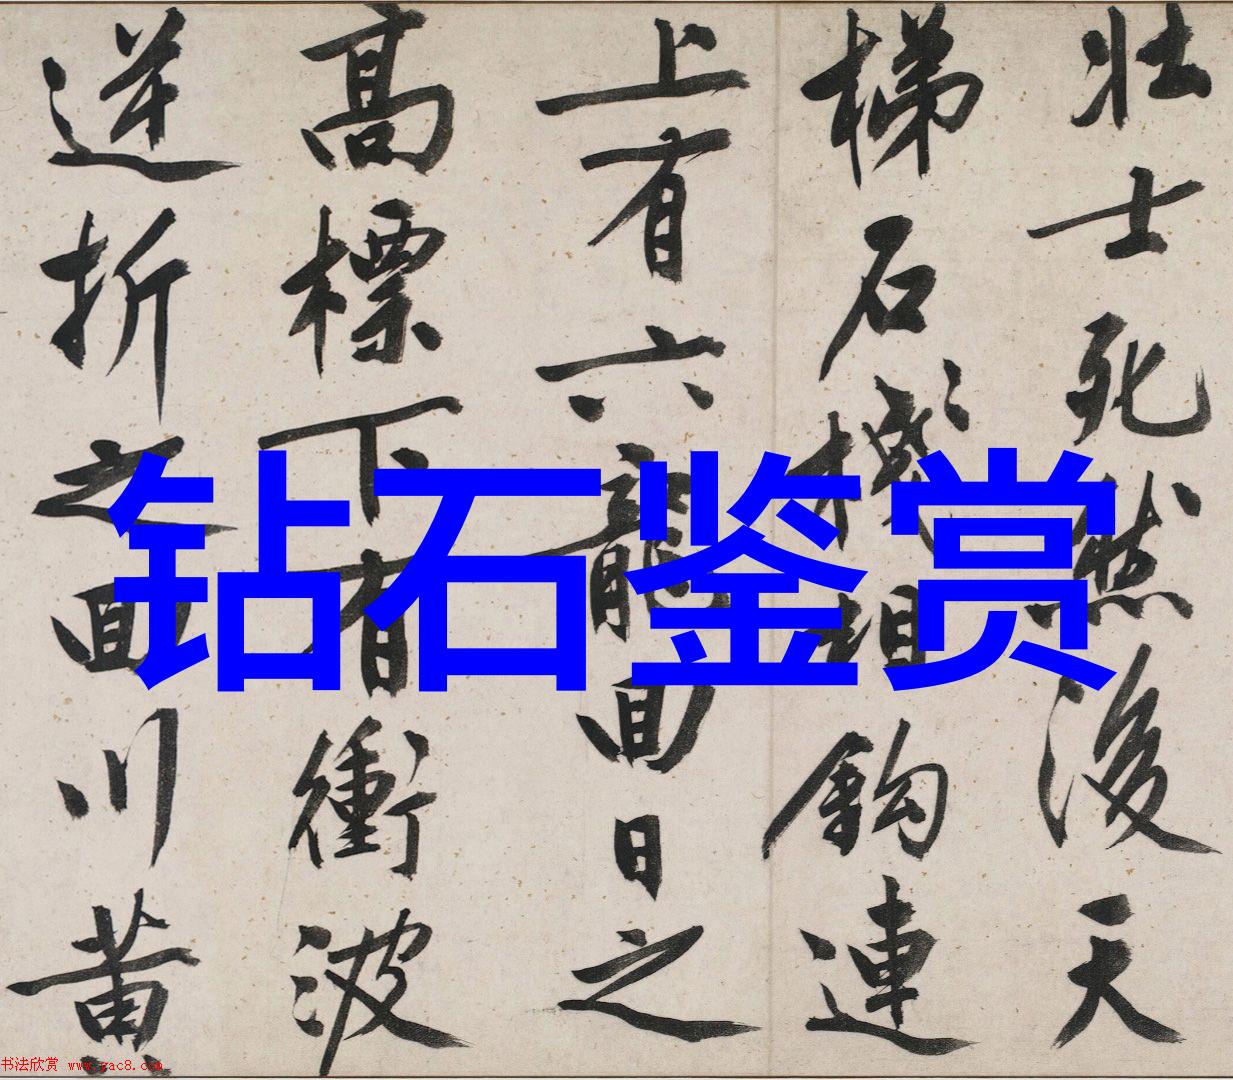 壮士死然後天
梯石棧相鈎連
上有六龍回日之
高標下有衝波
逆折之回川黄
钻石鉴赏
书法欣赏 www.yac8.com